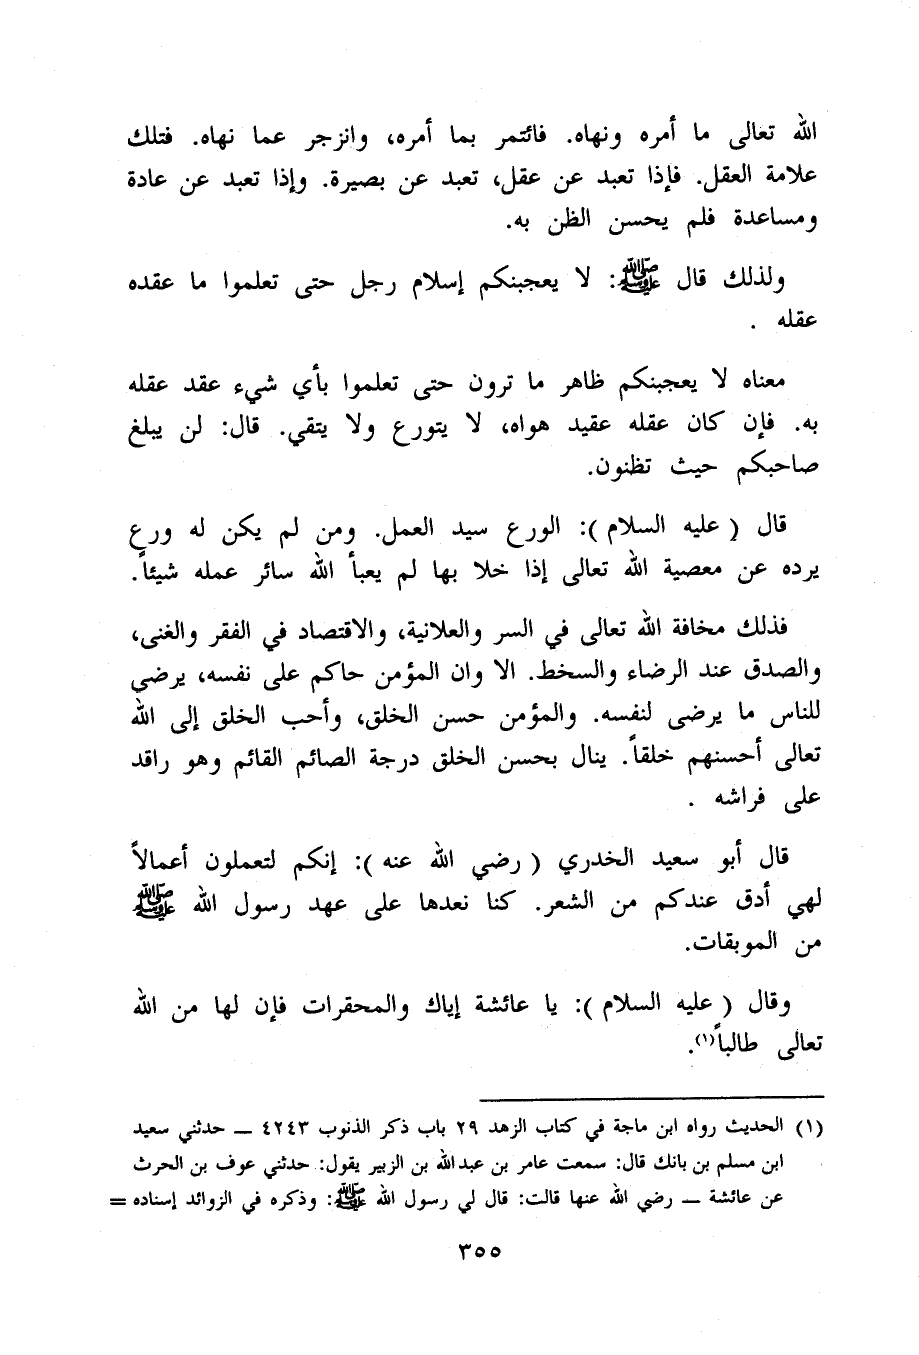 الله تعالى ما أمره ونهاه. فائتمر بما أمره، وانزجر عما نهاه. فتلك
علامة العقل. فإذا تعبد عن عقل، تعبد عن بصيرة. وإذا تعبد عن عادة
ومساعدة فلم يحسن الظن به.
ولذلك قال ﷺ: لا يعجبنكم إسلام رجل حتى تعلموا ما عقده
عقله .
معناه لا يعجبنكم ظاهر ما ترون حتى تعلموا بأي شيء عقد عقله
به. فإن كان عقله عقيد هواه، لا يتورع ولا يتقي. قال: لن يبلغ
صاحبكم حيث تظنون.
قال ( عليه السلام ): الورع سيد العمل. ومن لم يكن له ورع
يرده عن معصية الله تعالى إذا خلا بها لم يعبأ الله سائر عمله شيئاً.
فذلك مخافة الله تعالى في السر والعلانية، والاقتصاد في الفقر والغنى،
والصدق عند الرضاء والسخط. الا وان المؤمن حاكم على نفسه، يرضي
للناس ما يرضى لنفسه. والمؤمن حسن الخلق، وأحب الخلق إلى الله
تعالى أحسنهم خلقاً. ينال بحسن الخلق درجة الصائم القائم وهو راقد
على فراشه .
قال أبو سعيد الخدري ( رضي الله عنه ): إنكم لتعملون أعمالاً
لهي أدق عندكم من الشعر. كنا نعدها على عهد رسول الله ﷺ
من الموبقات.
وقال ( عليه السلام ): يا عائشة إياك والمحقرات فإن لها من الله
تعالى طالباً(١).
(١) الحديث رواه ابن ماجة في كتاب الزهد ٢٩ باب ذكر الذنوب ٤٢٤٣ ــ حدثني سعيد
ابن مسلم بن بانك قال: سمعت عامر بن عبدالله بن الزبير يقول: حدثني عوف بن الحرث
عن عائشة ــ رضي الله عنها قالت: قال لي رسول الله ﷺ: وذكره في الزوائد إسناده =
٣٥٥